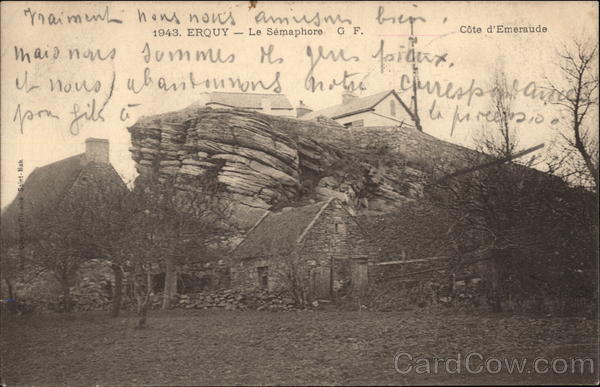 vraiment nous nous amusons bien
1943. ERQUY — Le Sémaphore G F.
Côte d'Emeraude
mais nous sommes des gens pieux,
et nous abandonnons notre correspondance
pour filer à la procession.
CardCow.com